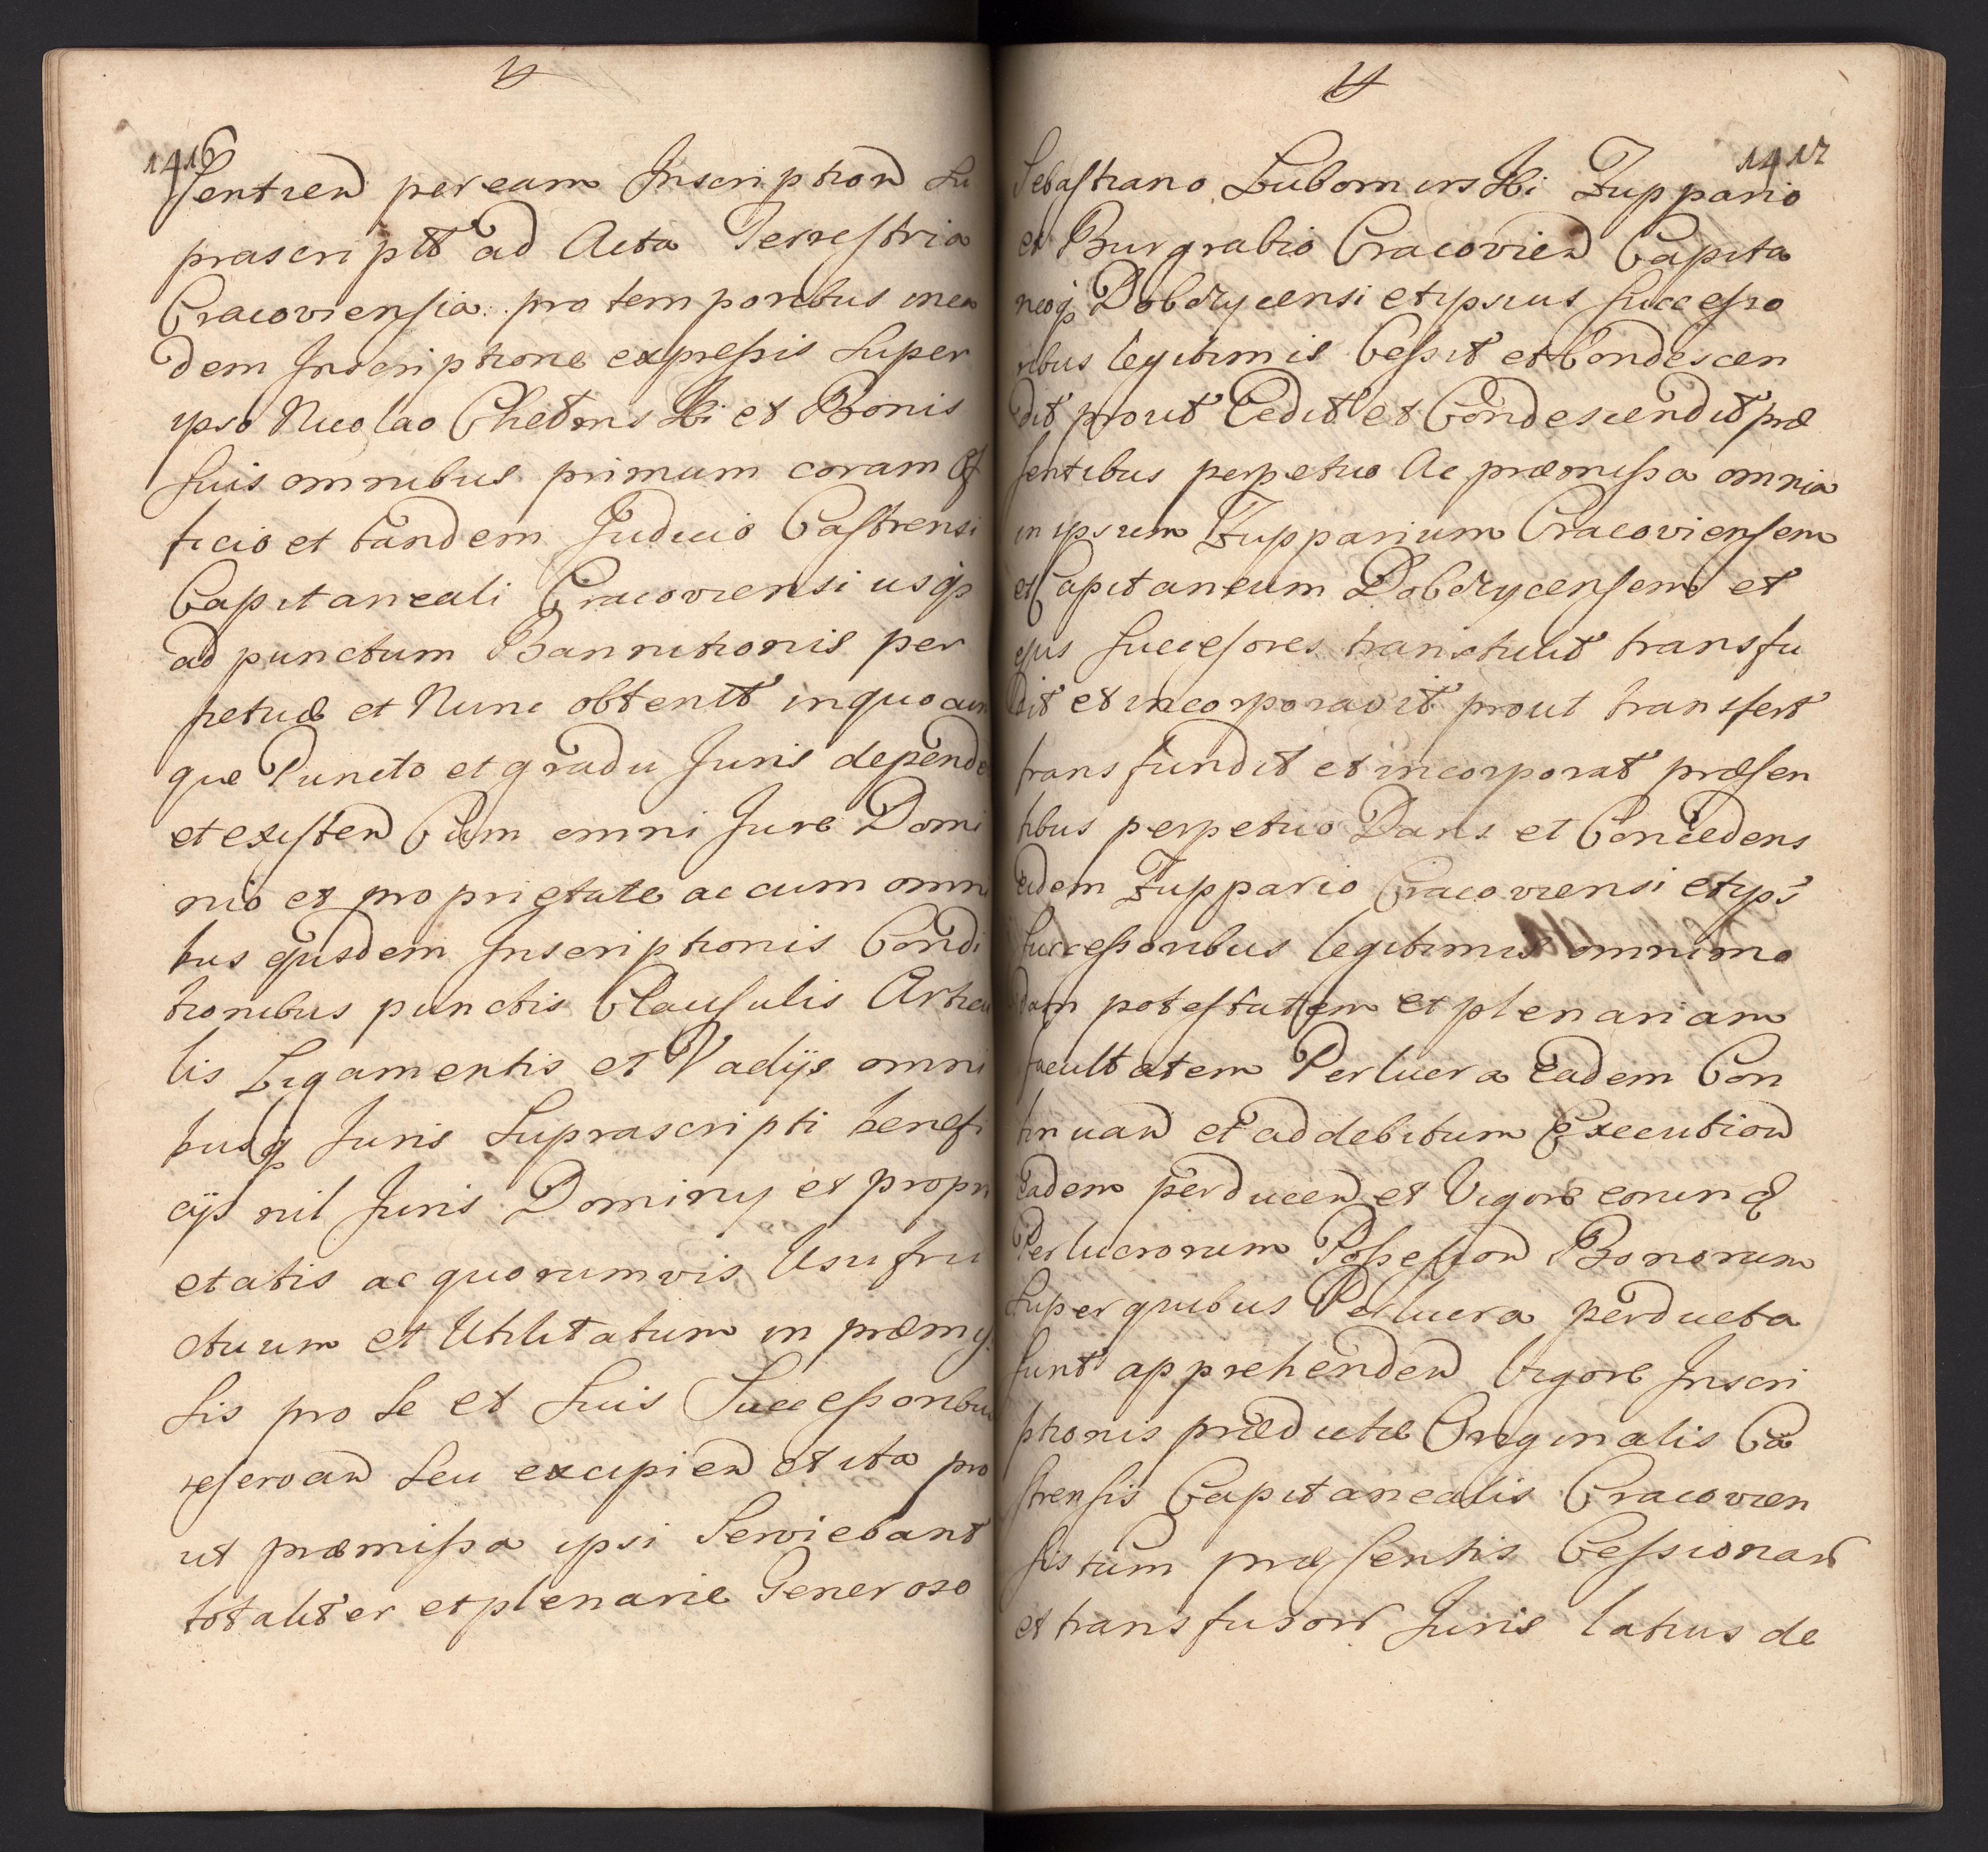 1416
sentien per eam Inscription Su
prascriptt ad Acta Terrestria
Cracoviensia pro temporibus inea
dem Inscriptione expressis Super
ipso Nicolao Chetmski et Bonis
Suis omnibus primum coram Of
ficio et tandem Judicio Castrensi
Capitaneali Cracoviensi usq
ad punctum Bannitionis per
petuæ et Nunc obtentt inquocun
que Puncto et gradu Juris depende
et existen Cum omni Jure Domi
nio et proprietate ac cum omni
bus ejusdem Inscriptionis Condi
tionibus punctis Clausulis Articu
lis Ligamentis et Vadijs omni
busq Juris Suprascripti benefi
cijs nil Juris Dominy et propri
etatis ac quorumvis Usufru
ctuum et Utilitatum in præmis
sis pro Se et Suis Successoribus
reservan Seu excipien et ita pro
ut præmissa ipsi Serviebant
totaliter et plenarie Generoso
1417
Sebastiano Lubomirski Zuppario
et Burgrabio Cracovien Capita
neoq Dobczycensi et ipsius Successo
ribus legitimis Cessit et Condescen
dit prout Cedit et Condescendit præ
sentibus perpetuo Ac præmissa omnia
in ipsum Zupparium Cracoviensem
et Capitaneum Dobczycensem et
ejus Successores transtulit transfu
dit et incorporavit prout transfert
transfundit et incorporat præsen
tibus perpetuo Dans et Concedens
eidem Zuppario Cracoviensi et ips
Successoribus legitimis omnimo
dam potestatem et plenariam
facultatem Perlucra Eadem Con
tinuan et ad debitum Execution
eadem perducen et Vigore eorund
Perlucrorum Possession Bonorum
Super quibus Perlucra perducta
Sunt apprehenden Vigore Inscri
ptionis prædictæ Originalis Ca
strensis Capitanealis Cracovien
sis tum præsentis Cessionar
et transfusor Juris latius de